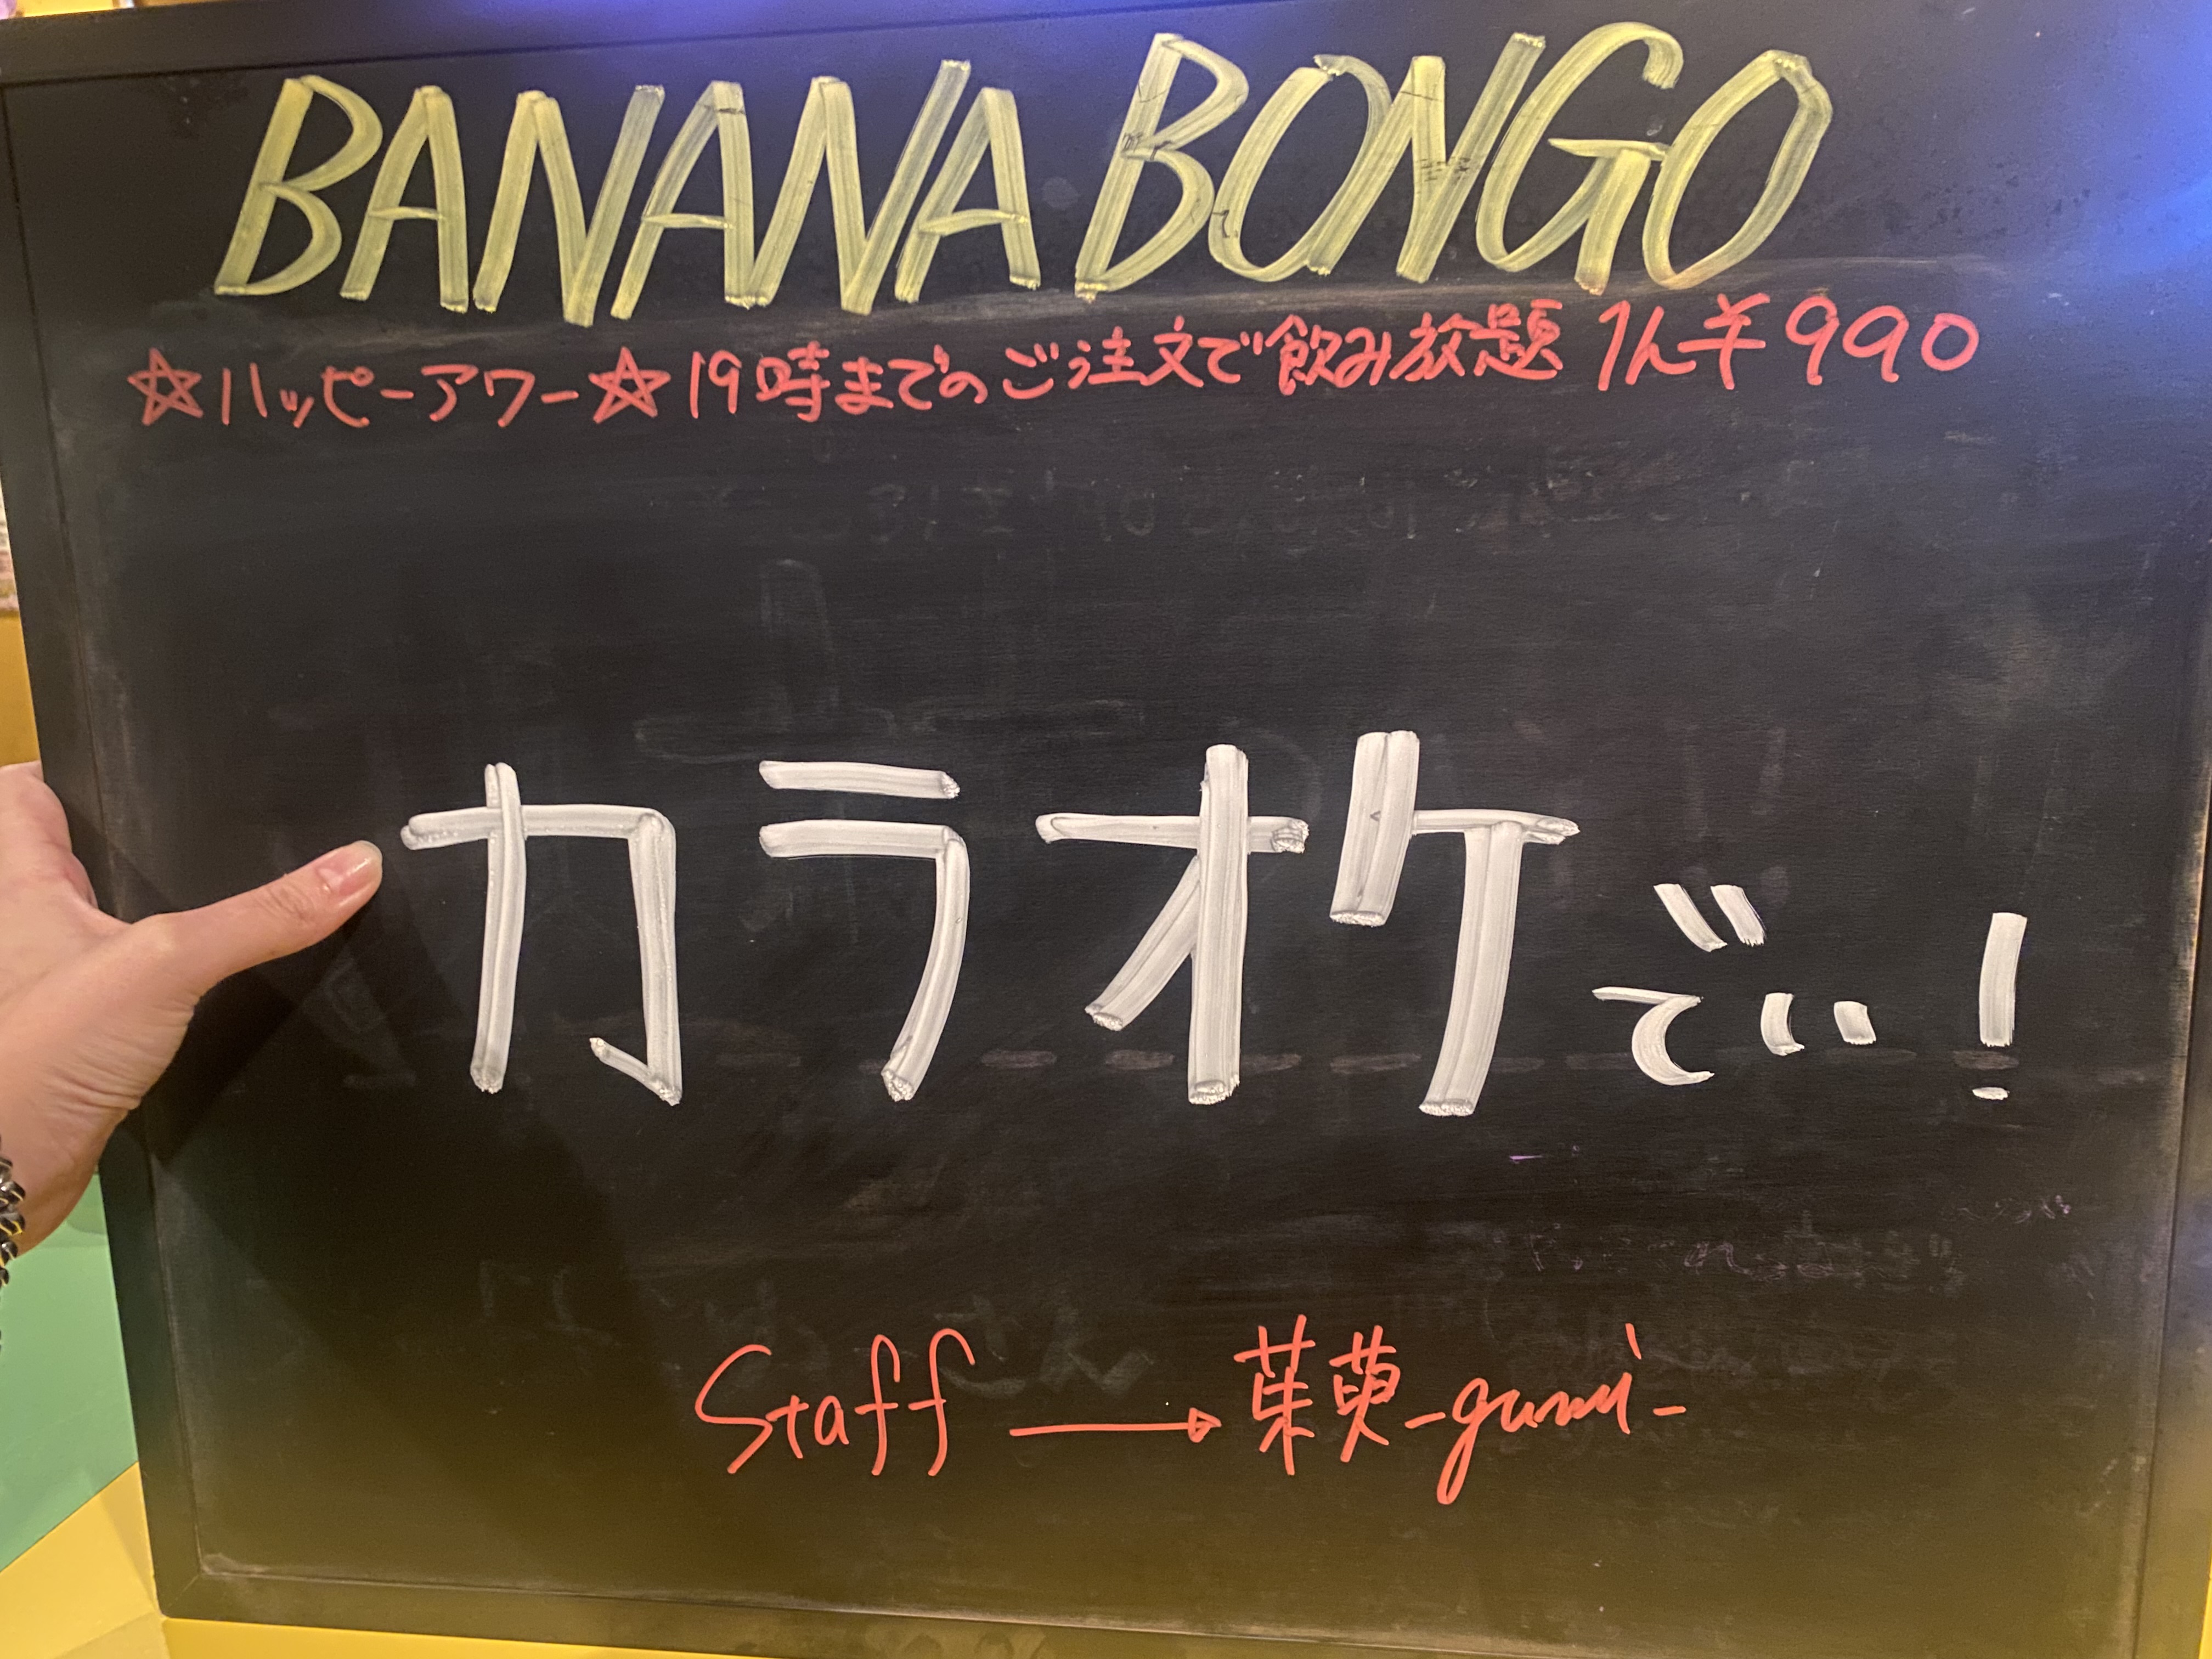 BANANA BONGO
☆ハッピーアワー☆19時までのご注文で飲み放題 1人¥990
カラオケでい!
Staff → 茱萸-gumi-